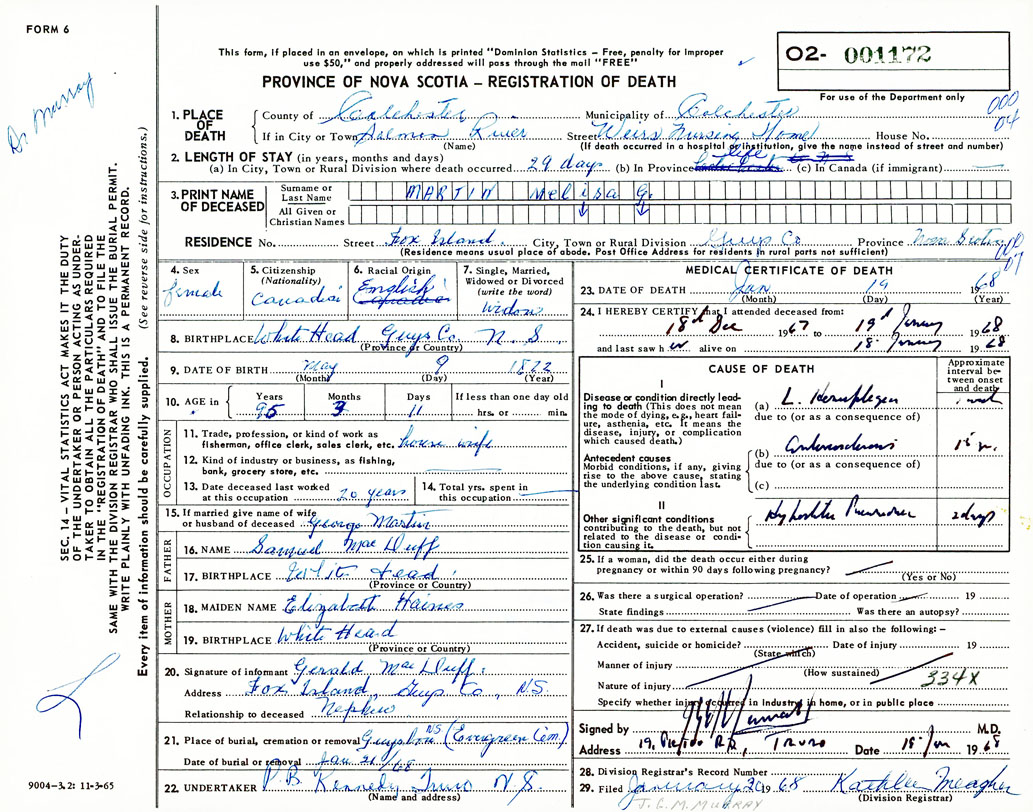 FORM 6
Dr Murray
This form, if placed in an envelope, on which is printed "Dominion Statistics – Free, penalty for improper
use $50," and properly addressed will pass through the mail "FREE"
PROVINCE OF NOVA SCOTIA – REGISTRATION OF DEATH
O2- 001172
For use of the Department only
000
04
1. PLACE OF DEATH
County of Colchester Municipality of Colchester
If in City or Town Salmon River Street Weirs Nursing Home House No.
(Name) (If death occurred in a hospital or institution, give the name instead of street and number)
2. LENGTH OF STAY (in years, months and days)
(a) In City, Town or Rural Division where death occurred 29 days (b) In Province life (c) In Canada (if immigrant)
3. PRINT NAME OF DECEASED
Surname or Last Name MARTIN Melissa G.
All Given or Christian Names
RESIDENCE No. Street Fox Island City, Town or Rural Division Guys Co Province Nova Scotia
(Residence means usual place of abode. Post Office Address for residents in rural parts not sufficient)
4. Sex female
5. Citizenship (Nationality) Canadian
6. Racial Origin English
7. Single, Married, Widowed or Divorced (write the word) Widow
8. BIRTHPLACE White Head Guys Co. N. S
(Province or Country)
9. DATE OF BIRTH May 9 1872
(Month) (Day) (Year)
10. AGE in Years 95 Months 3 Days 11 If less than one day old hrs. or min.
OCCUPATION
11. Trade, profession, or kind of work as
fisherman, office clerk, sales clerk, etc. house wife
12. Kind of industry or business, as fishing,
bank, grocery store, etc.
13. Date deceased last worked
at this occupation 20 years
14. Total yrs. spent in
this occupation
15. If married give name of wife
or husband of deceased George Martin
FATHER
16. NAME Samuel Mac Duff
17. BIRTHPLACE White Head
(Province or Country)
MOTHER
18. MAIDEN NAME Elizabeth Haines
19. BIRTHPLACE White Heard
(Province or Country)
20. Signature of informant Gerald Mac Duff
Address Fox Island, Guys Co, NS
Relationship to deceased Nephew
21. Place of burial, cremation or removal Guysboro NS (Evergreen Cem.)
Date of burial or removal Jan 21/68
22. UNDERTAKER P.B. Kennedy Truro N.S.
(Name and address)
MEDICAL CERTIFICATE OF DEATH
23. DATE OF DEATH Jan 19 1968
(Month) (Day) (Year)
24. I HEREBY CERTIFY that I attended deceased from:
18th Dec 1967 to 19th January 1968
and last saw her alive on 18 January 1968
CAUSE OF DEATH
Approximate interval between onset and death
I
Disease or condition directly leading to death (This does not mean the mode of dying, e.g., heart failure, asthenia, etc. It means the disease, injury, or complication which caused death.)
(a) L. Hemiplegia
due to (or as a consequence of)
Antecedent causes
Morbid conditions, if any, giving rise to the above cause, stating the underlying condition last.
(b)
due to (or as a consequence of)
(c)
II
Other significant conditions
contributing to the death, but not related to the disease or condition causing it.
Hypostatic Pneumonia 2 days
25. If a woman, did the death occur either during
pregnancy or within 90 days following pregnancy?
(Yes or No)
26. Was there a surgical operation? Date of operation 19
State findings Was there an autopsy?
27. If death was due to external causes (violence) fill in also the following: –
Accident, suicide or homicide? Date of injury 19
(State which)
Manner of injury
(How sustained)
Nature of injury 334X
Specify whether injury occurred in Industry in home, or in public place
Signed by M.D.
Address 19, RD, TRURO Date 19 Jan 1968
28. Division Registrar's Record Number
29. Filed January 20 1968 Kathleen Meagher
(Division Registrar)
J. G. M. MURRAY
SEC. 14 – VITAL STATISTICS ACT MAKES IT THE DUTY
OF THE UNDERTAKER OR PERSON ACTING AS UNDERTAKER TO OBTAIN ALL THE PARTICULARS REQUIRED
IN THE "REGISTRATION OF DEATH" AND TO FILE THE
SAME WITH THE DIVISION REGISTRAR WHO SHALL ISSUE THE BURIAL PERMIT.
WRITE PLAINLY WITH UNFADING INK. THIS IS A PERMANENT RECORD.
Every item of information should be carefully supplied. (See reverse side for instructions.)
9004-3.2: 11-3-65